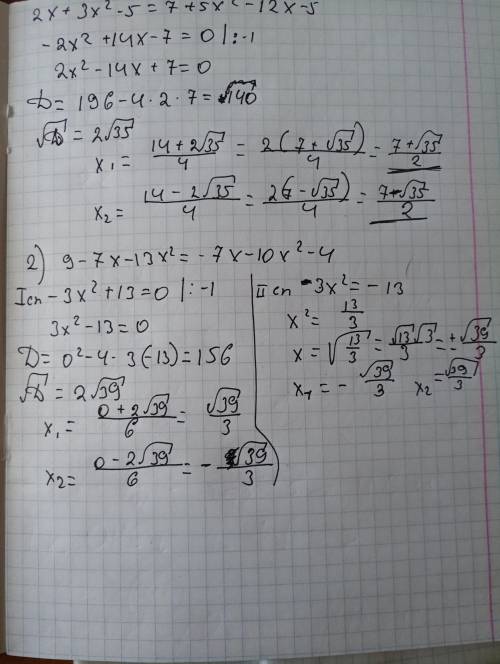 2x + 3x² - 5 = 7 + 5x² - 12x - 5
-2x² + 14x - 7 = 0 |: -1
2x² - 14x + 7 = 0
D = 196 - 4 · 2 · 7 = √140
√D = 2√35
x₁ = (14 + 2√35)/4 = 2(7 + √35)/4 = (7 + √35)/2
x₂ = (14 - 2√35)/4 = 2(7 - √35)/4 = (7 - √35)/2
2) 9 - 7x - 13x² = -7x - 10x² - 4
I сп - 3x² + 13 = 0 |: -1
3x² - 13 = 0
D = 0² - 4 · 3(-13) = 156
√D = 2√39
x₁ = (0 + 2√39)/6 = √39/3
x₂ = (0 - 2√39)/6 = - √39/3
II сп - 3x² = - 13
x² = 13/3
x = √(13/3) = √13 √3/3 = ± √39/3
x₁ = - √39/3 x₂ = √39/3